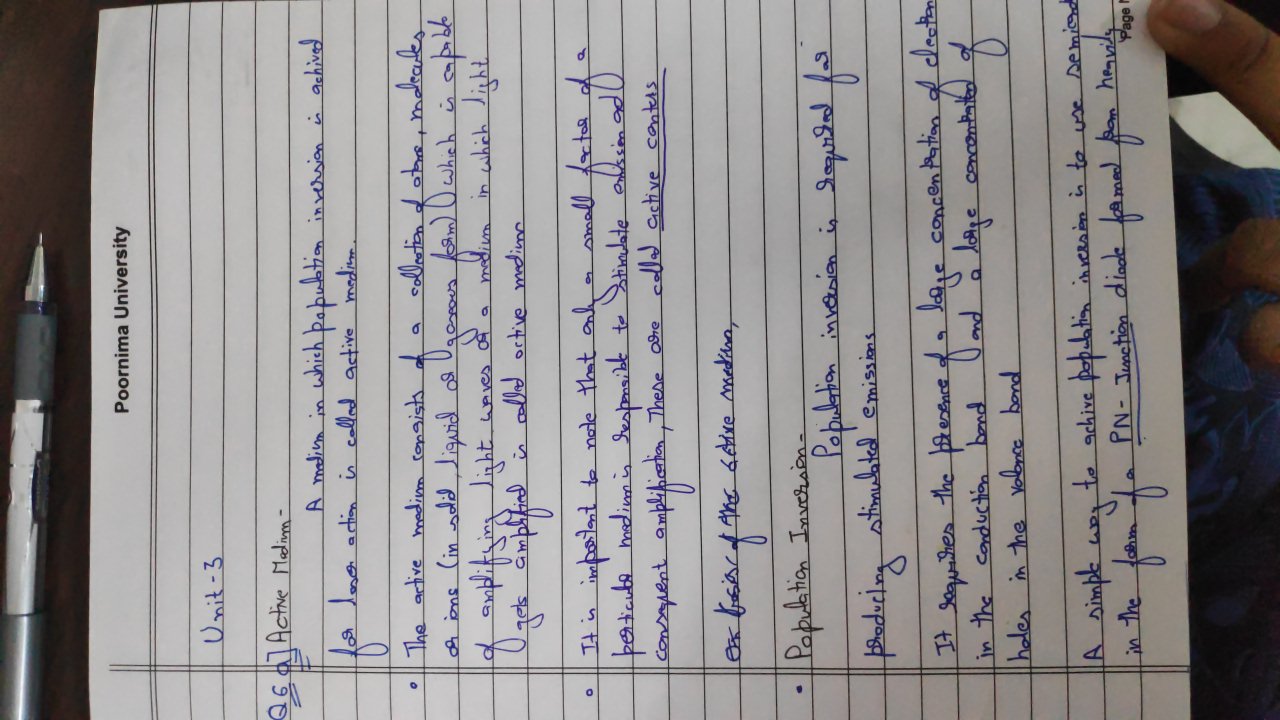 Poornima University
Unit-3
Q6 a] Active Medium-
A medium in which population inversion is achived
for laser action is called active medium.
The active medium consists of a collection of atoms, molecules
or ions (in solid, liquid or gaseous form) which is capable
of amplifying light waves or a medium in which light
gets amplified is called active medium
It is important to note that only a small factor of a
perticular medium is responsible to stimulate emission ad
consequent amplification, These are called active centers
basis of the active medium,
Population Inversion-
Population inversion is required for
producing stimulated emissions
It requires the presence of a large concentration of electron
in the conduction band and a large concentrated of
holes in the valance band
A simple way to achive population inversion is to use semicond
in the form of a PN-Junction diode formed from heavily
Page N